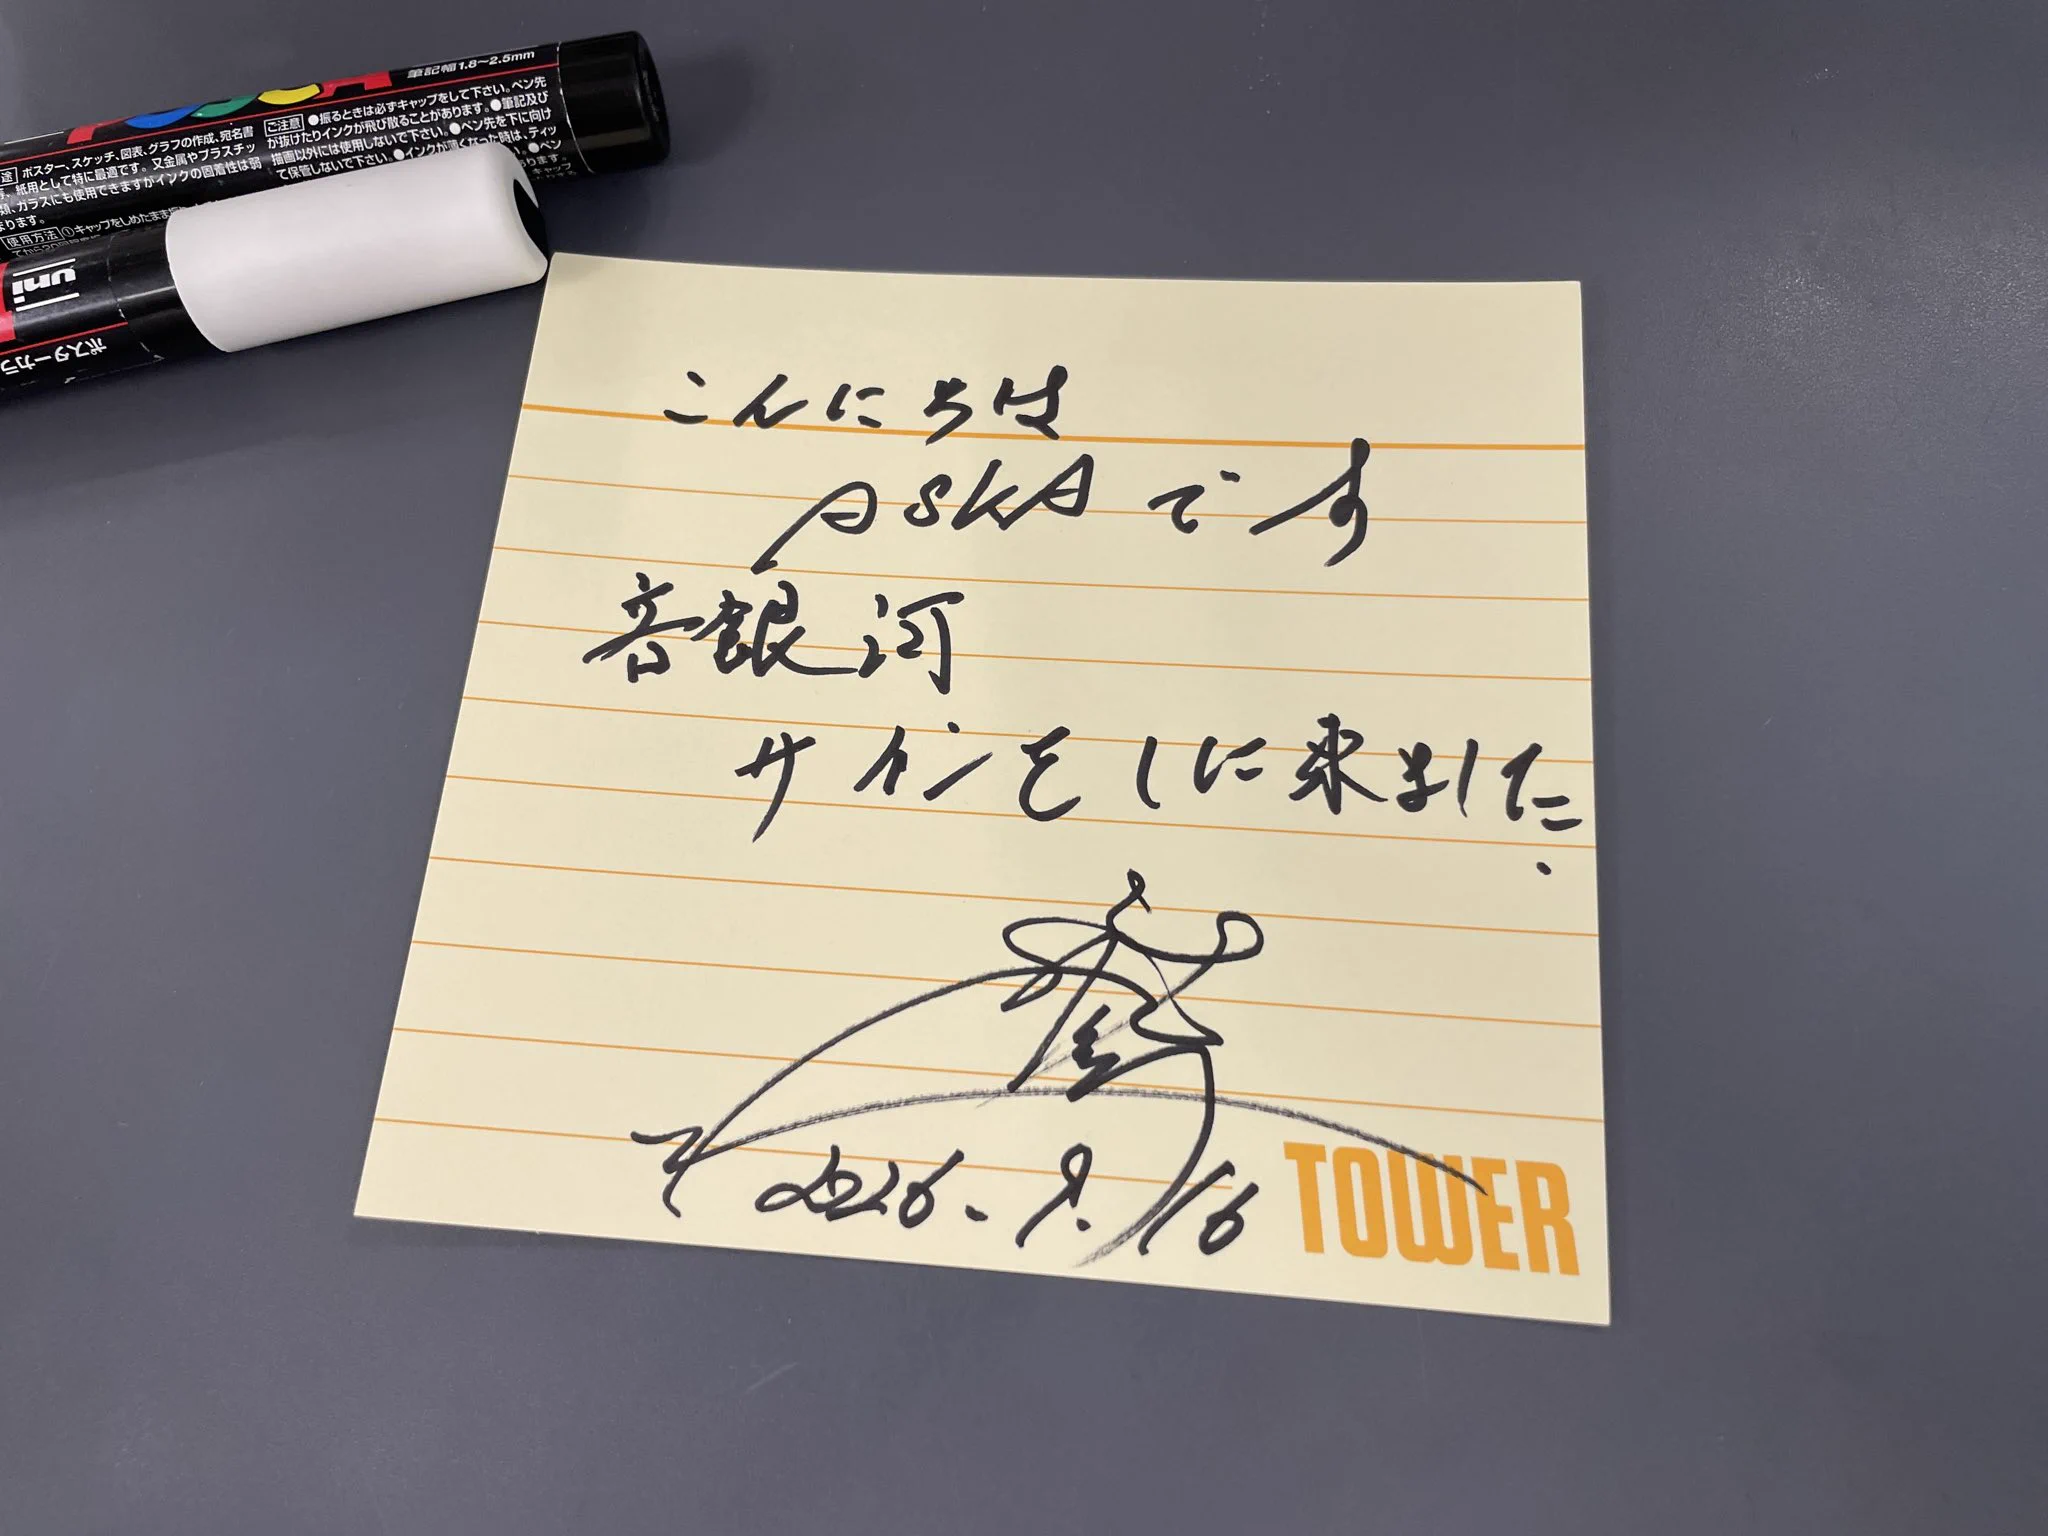 筆記幅1.8〜2.5mm
ポスター、スケッチ、図表、グラフの作成、宛名書
紙用として特に最適です。又金属やプラスチッ
ガラスにも使用できますがインクの固着性は弱
ります。
使用方法 ①キャップをしめたまま
ご注意 ●振るときは必ずキャップをして下さい。ペン先
が抜けたりインクが飛び散ることがあります。●筆記及び
描画以外には使用しないで下さい。●ペン先を下に向け
て保管しないで下さい。●インクが薄くなった時は、ティッ
uni
ポスターカラ
こんにちは
ASKAです
音銀河
サインをしに来ました.
2026.9.16
TOWER